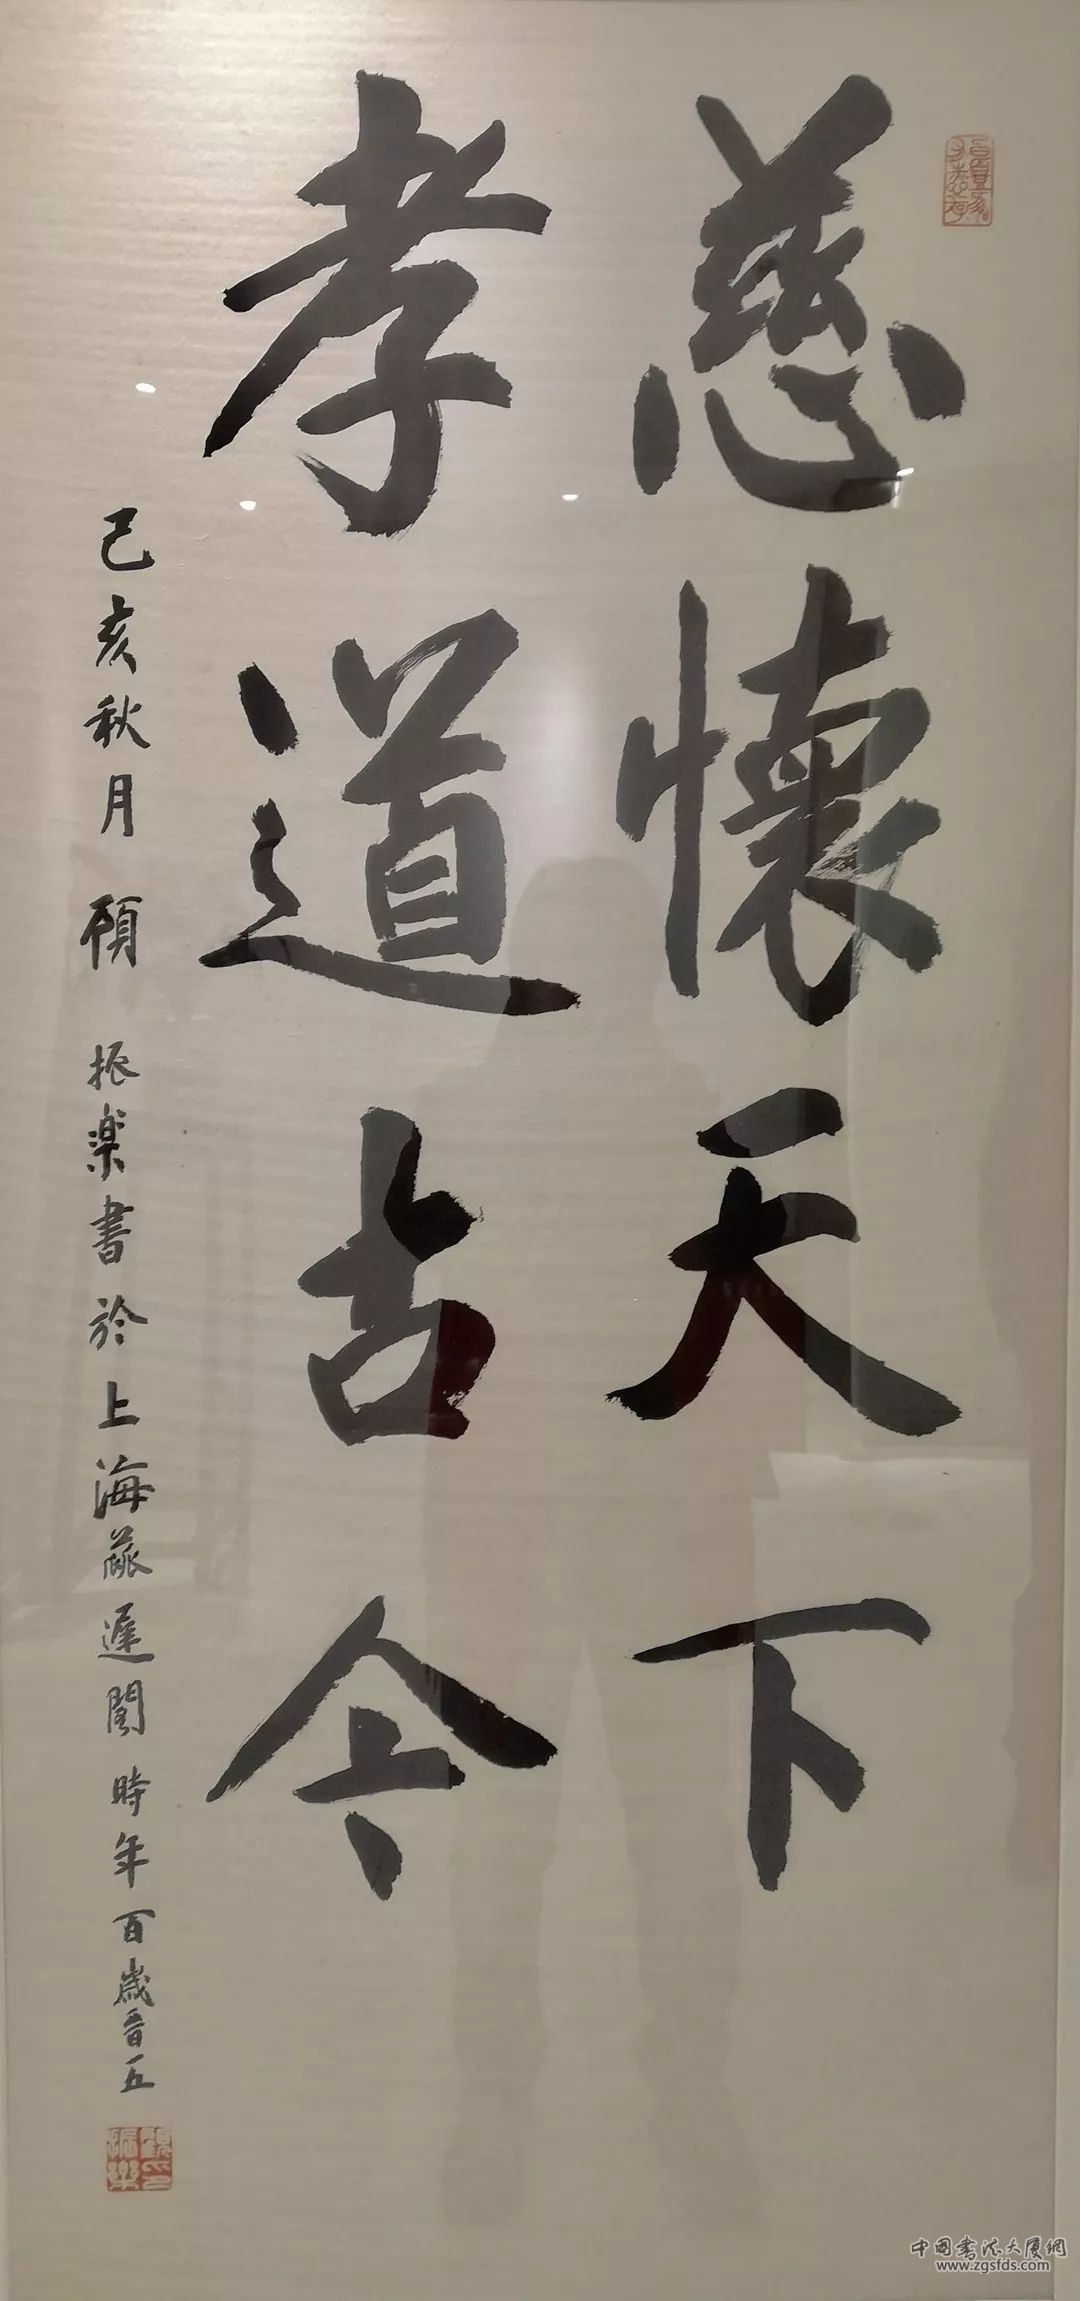 慈懷天下
孝道古今
己亥秋月顾振楽書於上海蔬遲閣時年百歲晋五
中國书法大厦網
www.zgsfds.com